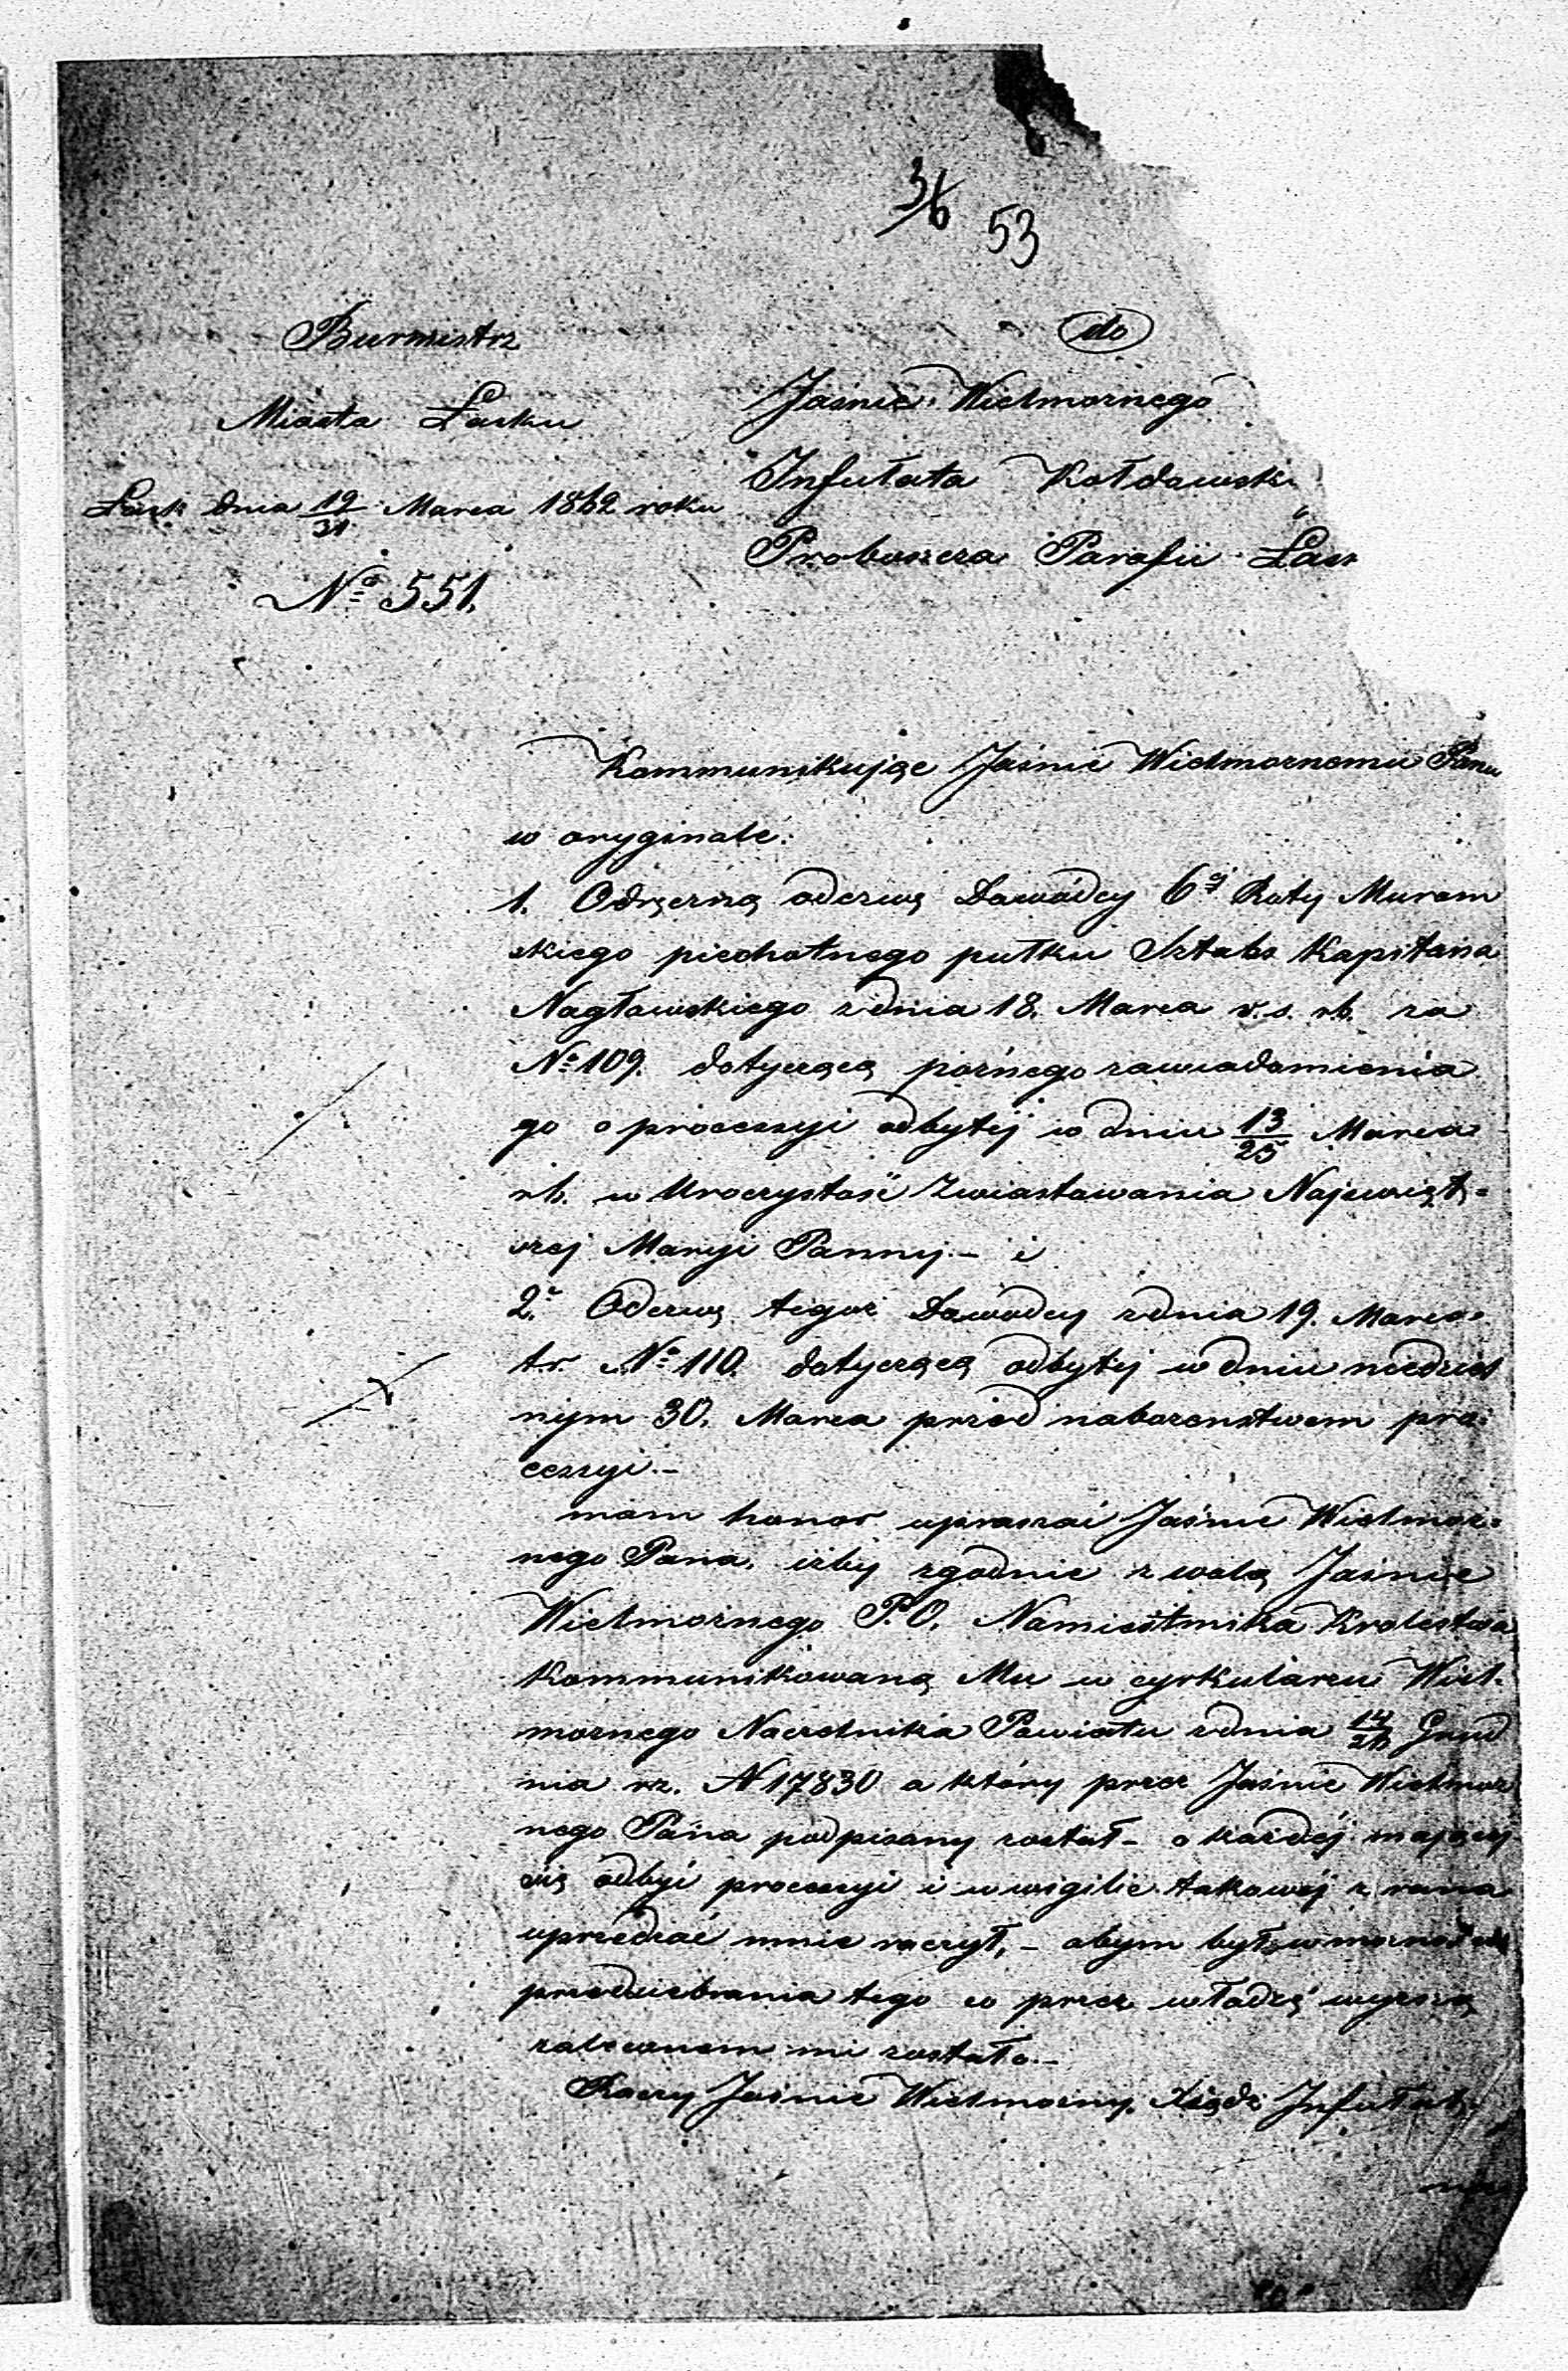 36 53
Burmistrz
Miasta Łasku
Łask dnia 19/31 Marca 1862 roku
No 551.
do
Jaśnie Wielmożnego
Infułata Kołdowski
Proboszcza Parafii Łask
Kommunikując Jaśnie Wielmożnemu Panu
w oryginale:
1. Odręczną odezwę Dowódcy 6ej Roty Murom
skiego piechotnego pułku Sztabs Kapitana
Nagłowskiego z dnia 18. Marca v.s. rb. za
No 109. dotyczącą poźnego zawiadomienia
go o processyi odbytéj w dniu 13/25 Marca
rb. w Uroczystość Zwiastowania Najświęt=
szej Maryi Panny.- i
2. Odezwę tegoż Dowódcy z dnia 19. Marca
t.r. No 110. dotyczącą odbytej w dniu niedziel
nym 30. Marca przed nabożenstwem pro=
cessyi.-
mam honor upraszać Jaśnie Wielmoż=
nego Pana, iżby zgodnie z wolą Jaśnie
Wielmożnego P.O. Namiestnika Krolestwa
Kommunikowaną Mu w cyrkularzu Wiel=
możnego Naczelnika Powiatu z dnia 14/26 Grud
nia rz. N 17830 a który przez Jaśnie Wielmoż
nego Pana podpisany został- o każdéj mającej
się odbyć processyi i w wigilie takowéj z rana
uprzedzać mnie raczył,- abym był w możności
przedsiebrania tego co przez władzę wyższą
zaleconem mi zostało.-
Raczy Jaśnie Wielmożny Xiądz Infułat